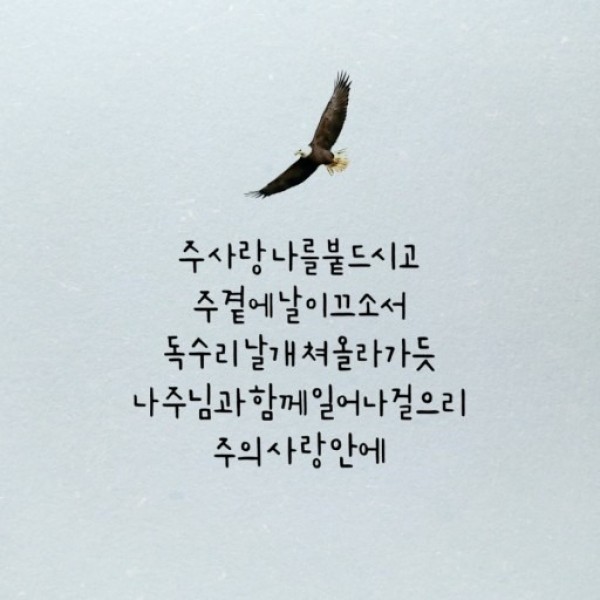 주사랑나를붙드시고
주곁에날이끄소서
독수리날개쳐올라가듯
나주님과함께일어나걸으리
주의사랑안에